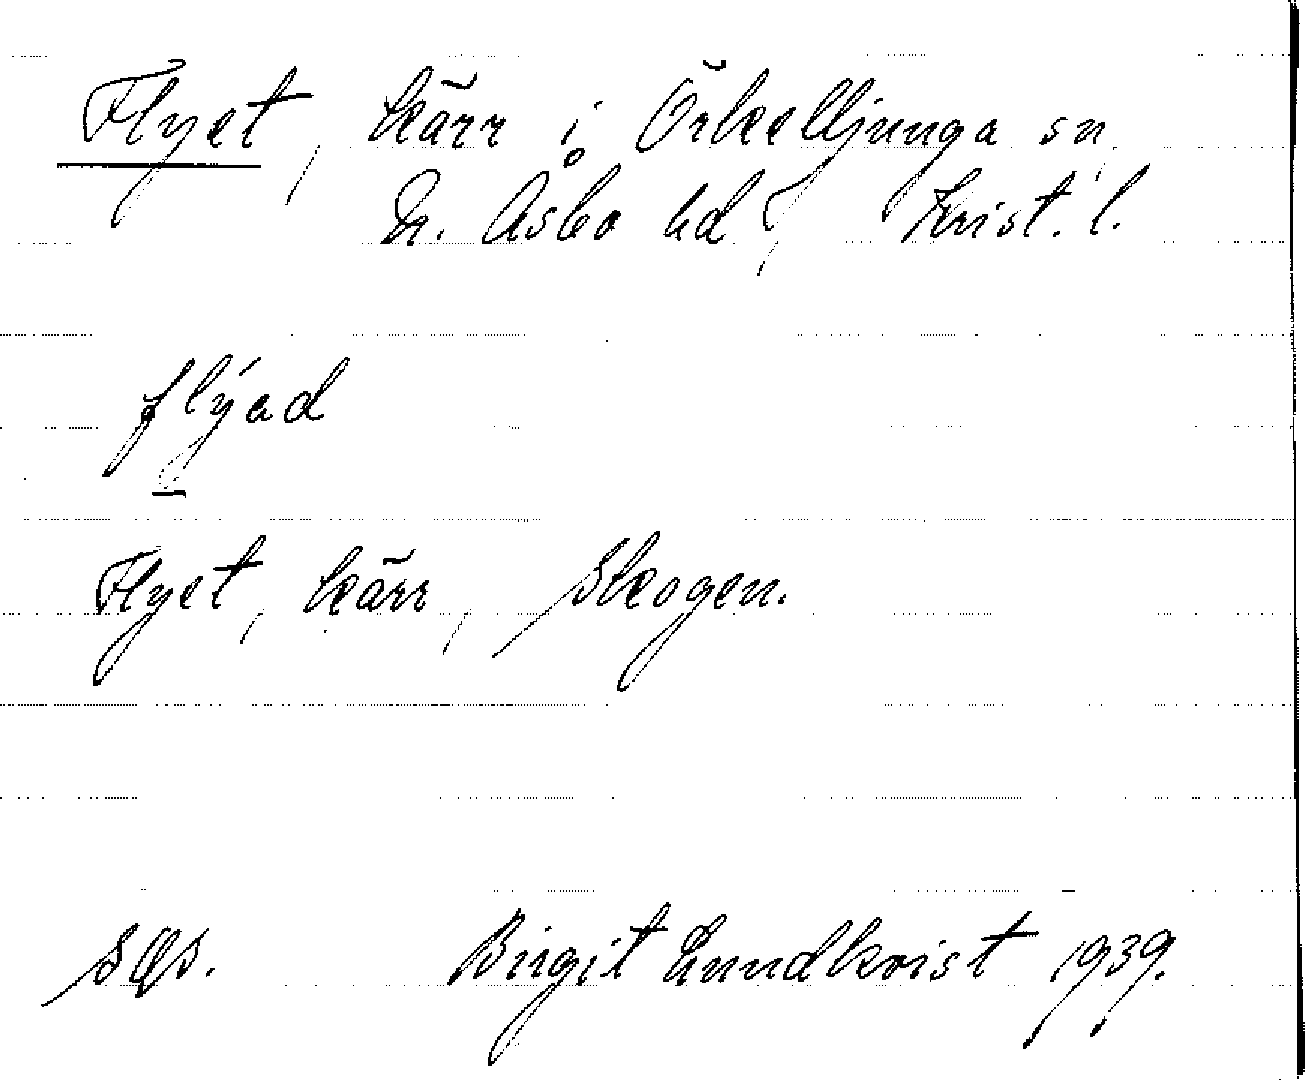 Flyet, kärr i Örkelljunga sn,
N. Åsbo hd, Krist. l.
flýad
Flyet, kärr, Skogen.
Birgit Lundkvist 1939.